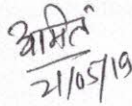 अमित
21/05/19